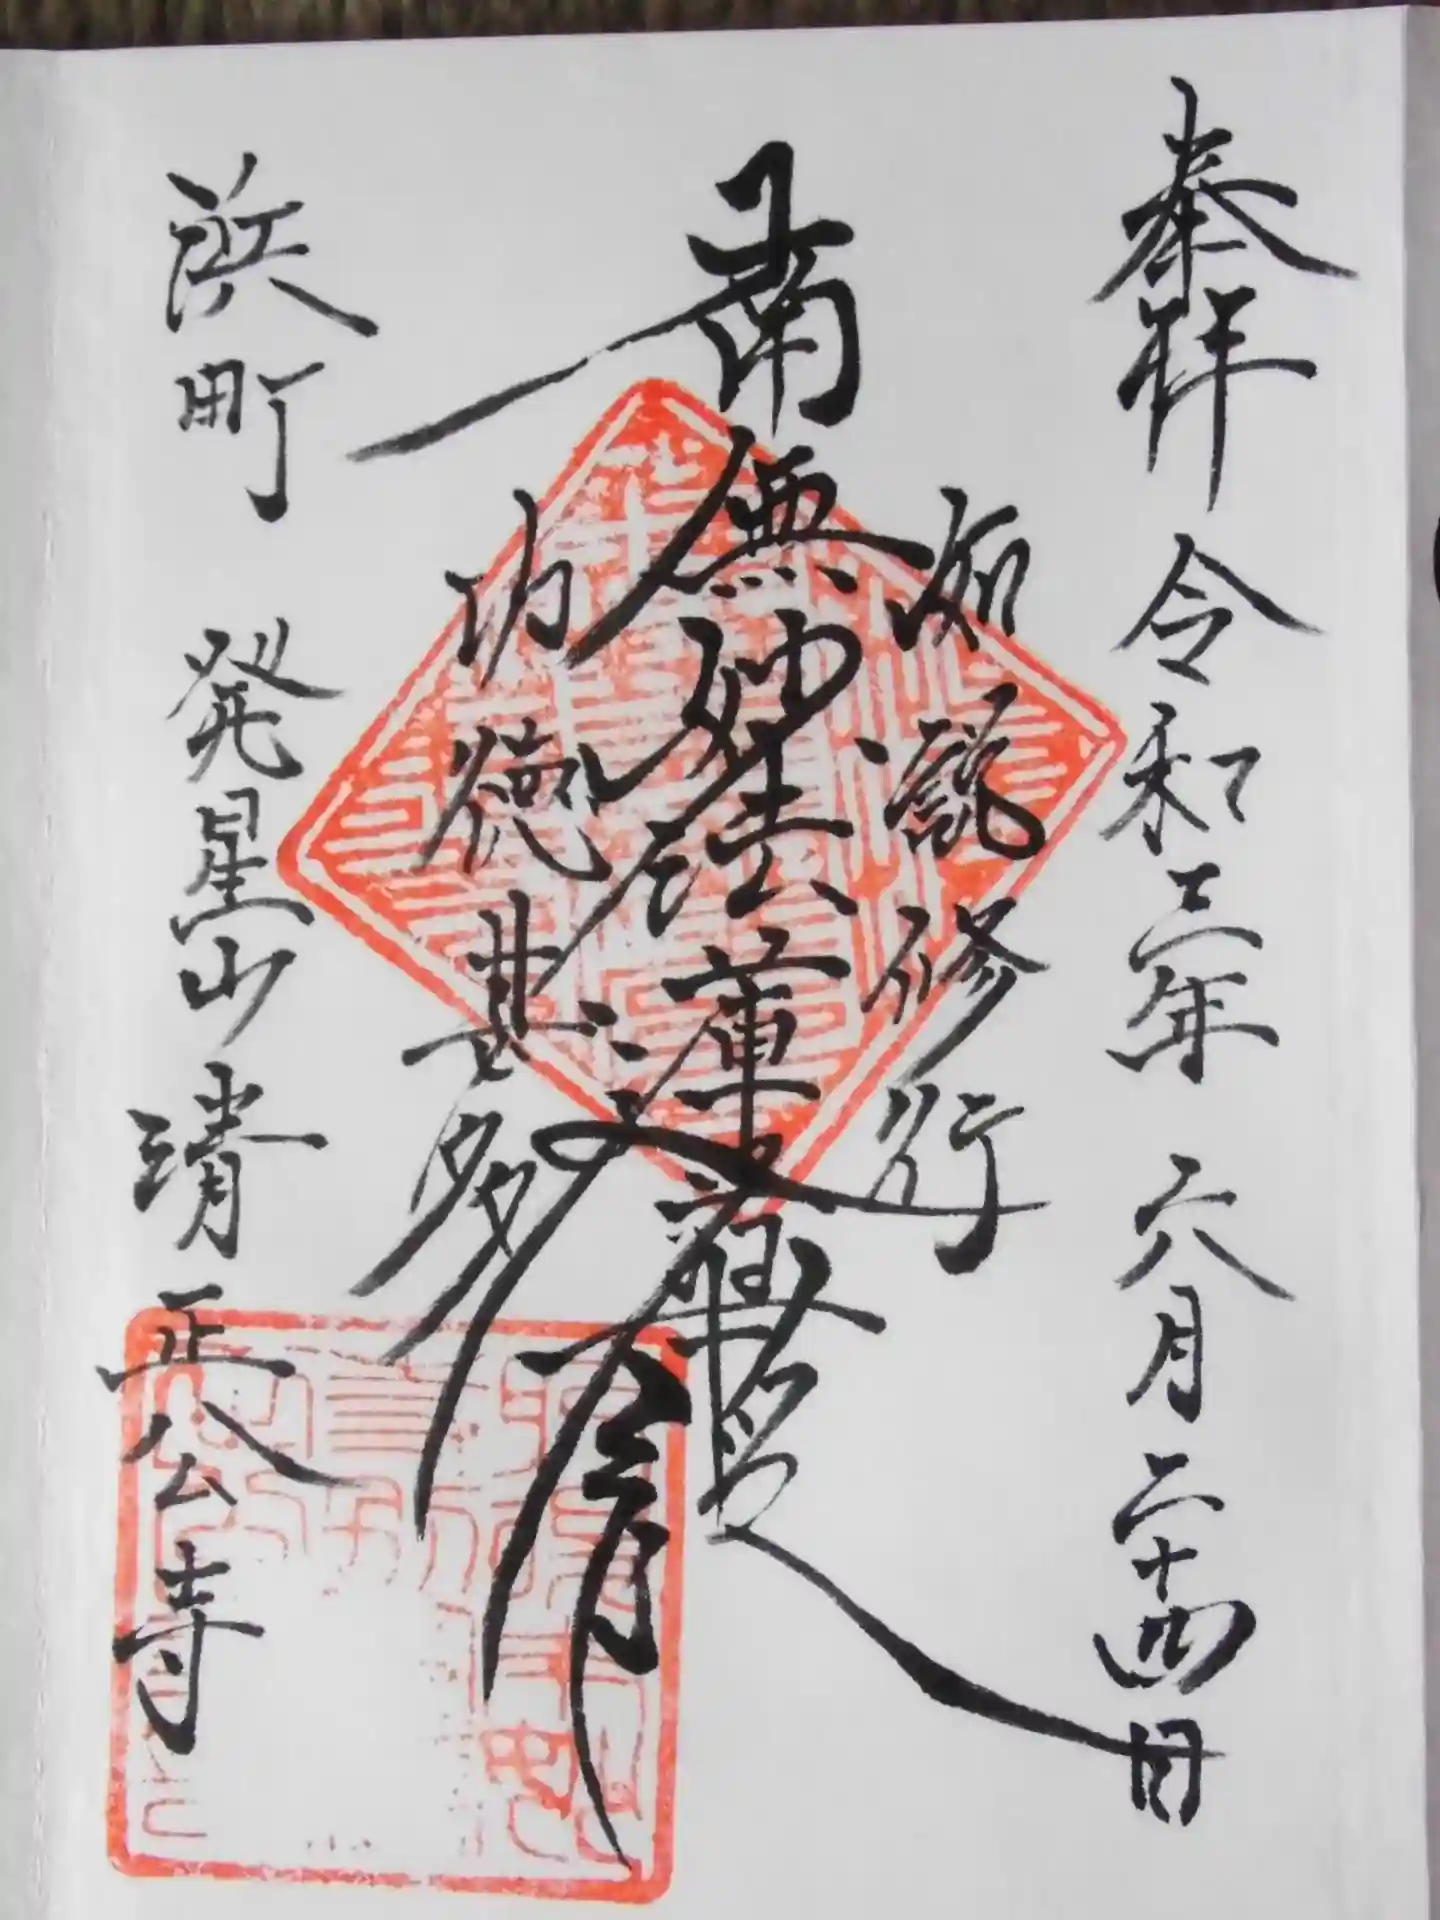 奉拝 令和三年 六月二十四日
如説修行
南無妙法蓮華経
功徳甚多
浜町 発星山 清正公寺